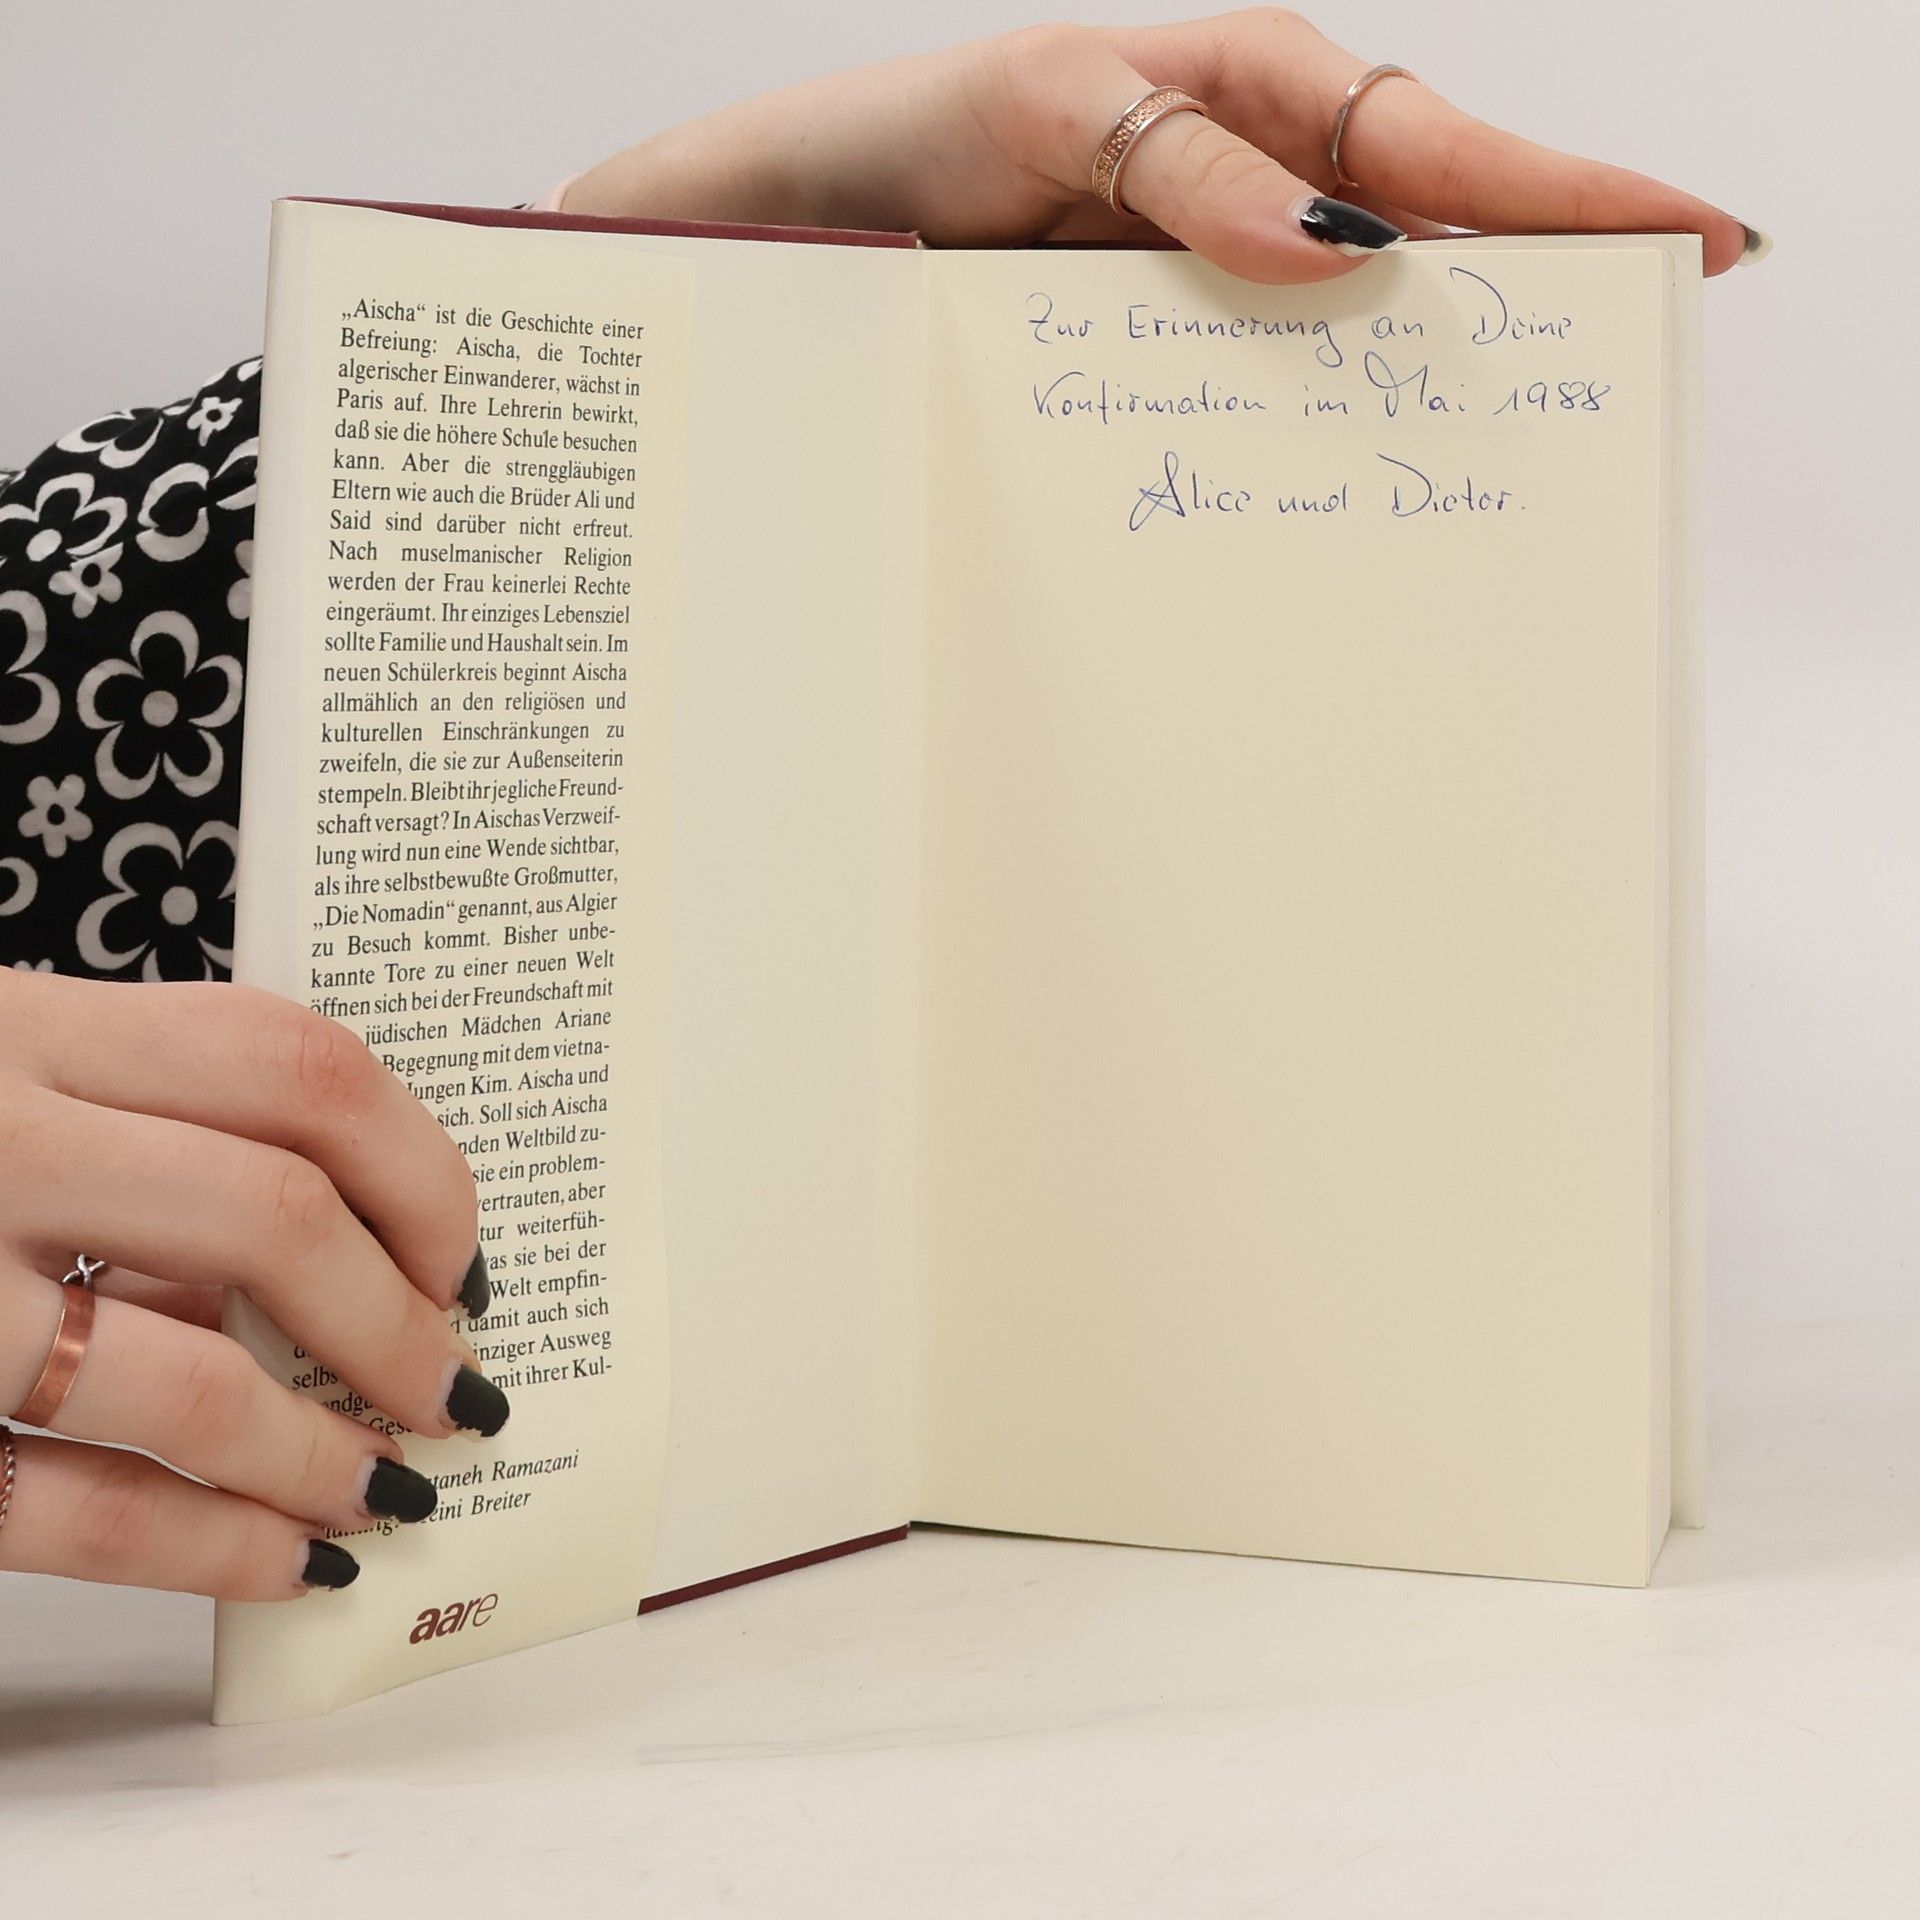 „Aischa“ ist die Geschichte einer
Befreiung: Aischa, die Tochter
algerischer Einwanderer, wächst in
Paris auf. Ihre Lehrerin bewirkt,
daß sie die höhere Schule besuchen
kann. Aber die strenggläubigen
Eltern wie auch die Brüder Ali und
Said sind darüber nicht erfreut.
Nach muselmanischer Religion
werden der Frau keinerlei Rechte
eingeräumt. Ihr einziges Lebensziel
sollte Familie und Haushalt sein. Im
neuen Schülerkreis beginnt Aischa
allmählich an den religiösen und
kulturellen Einschränkungen zu
zweifeln, die sie zur Außenseiterin
stempeln. Bleibt ihr jegliche Freund-
schaft versagt? In Aischas Verzweif-
lung wird nun eine Wende sichtbar,
als ihre selbstbewußte Großmutter,
„Die Nomadin“ genannt, aus Algier
zu Besuch kommt. Bisher unbe-
kannte Tore zu einer neuen Welt
öffnen sich bei der Freundschaft mit
jüdischen Mädchen Ariane
Begegnung mit dem vietna-
Jungen Kim. Aischa und
sich. Soll sich Aischa
Weltbild zu-
sie ein problem-
vertrauten, aber
weiterfüh-
sie bei der
Welt empfin-
damit auch sich
Ausweg
mit ihrer Kul-
Ramazani
Breiter
aare
Zur Erinnerung an Deine
Konfirmation im Mai 1988
Alice und Dieter.